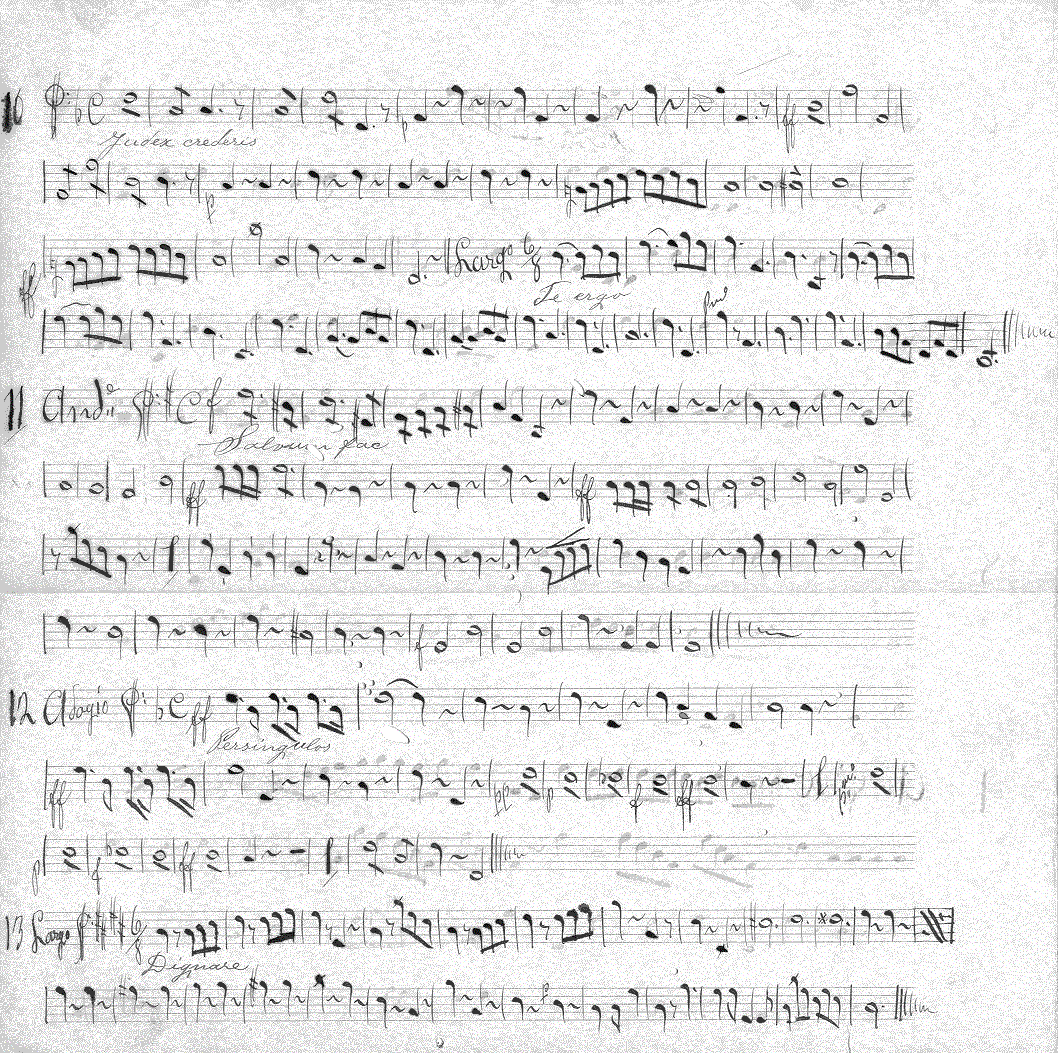 10
p ff
Judex crederis
p
ff Largo 6/8
Te ergo
11 And.º C f
Salvum fac
ff ff
f
12 Adagio C ff
Persingulos
ff pp p f ff
p f ff
13 Largo 6/8
Dignare